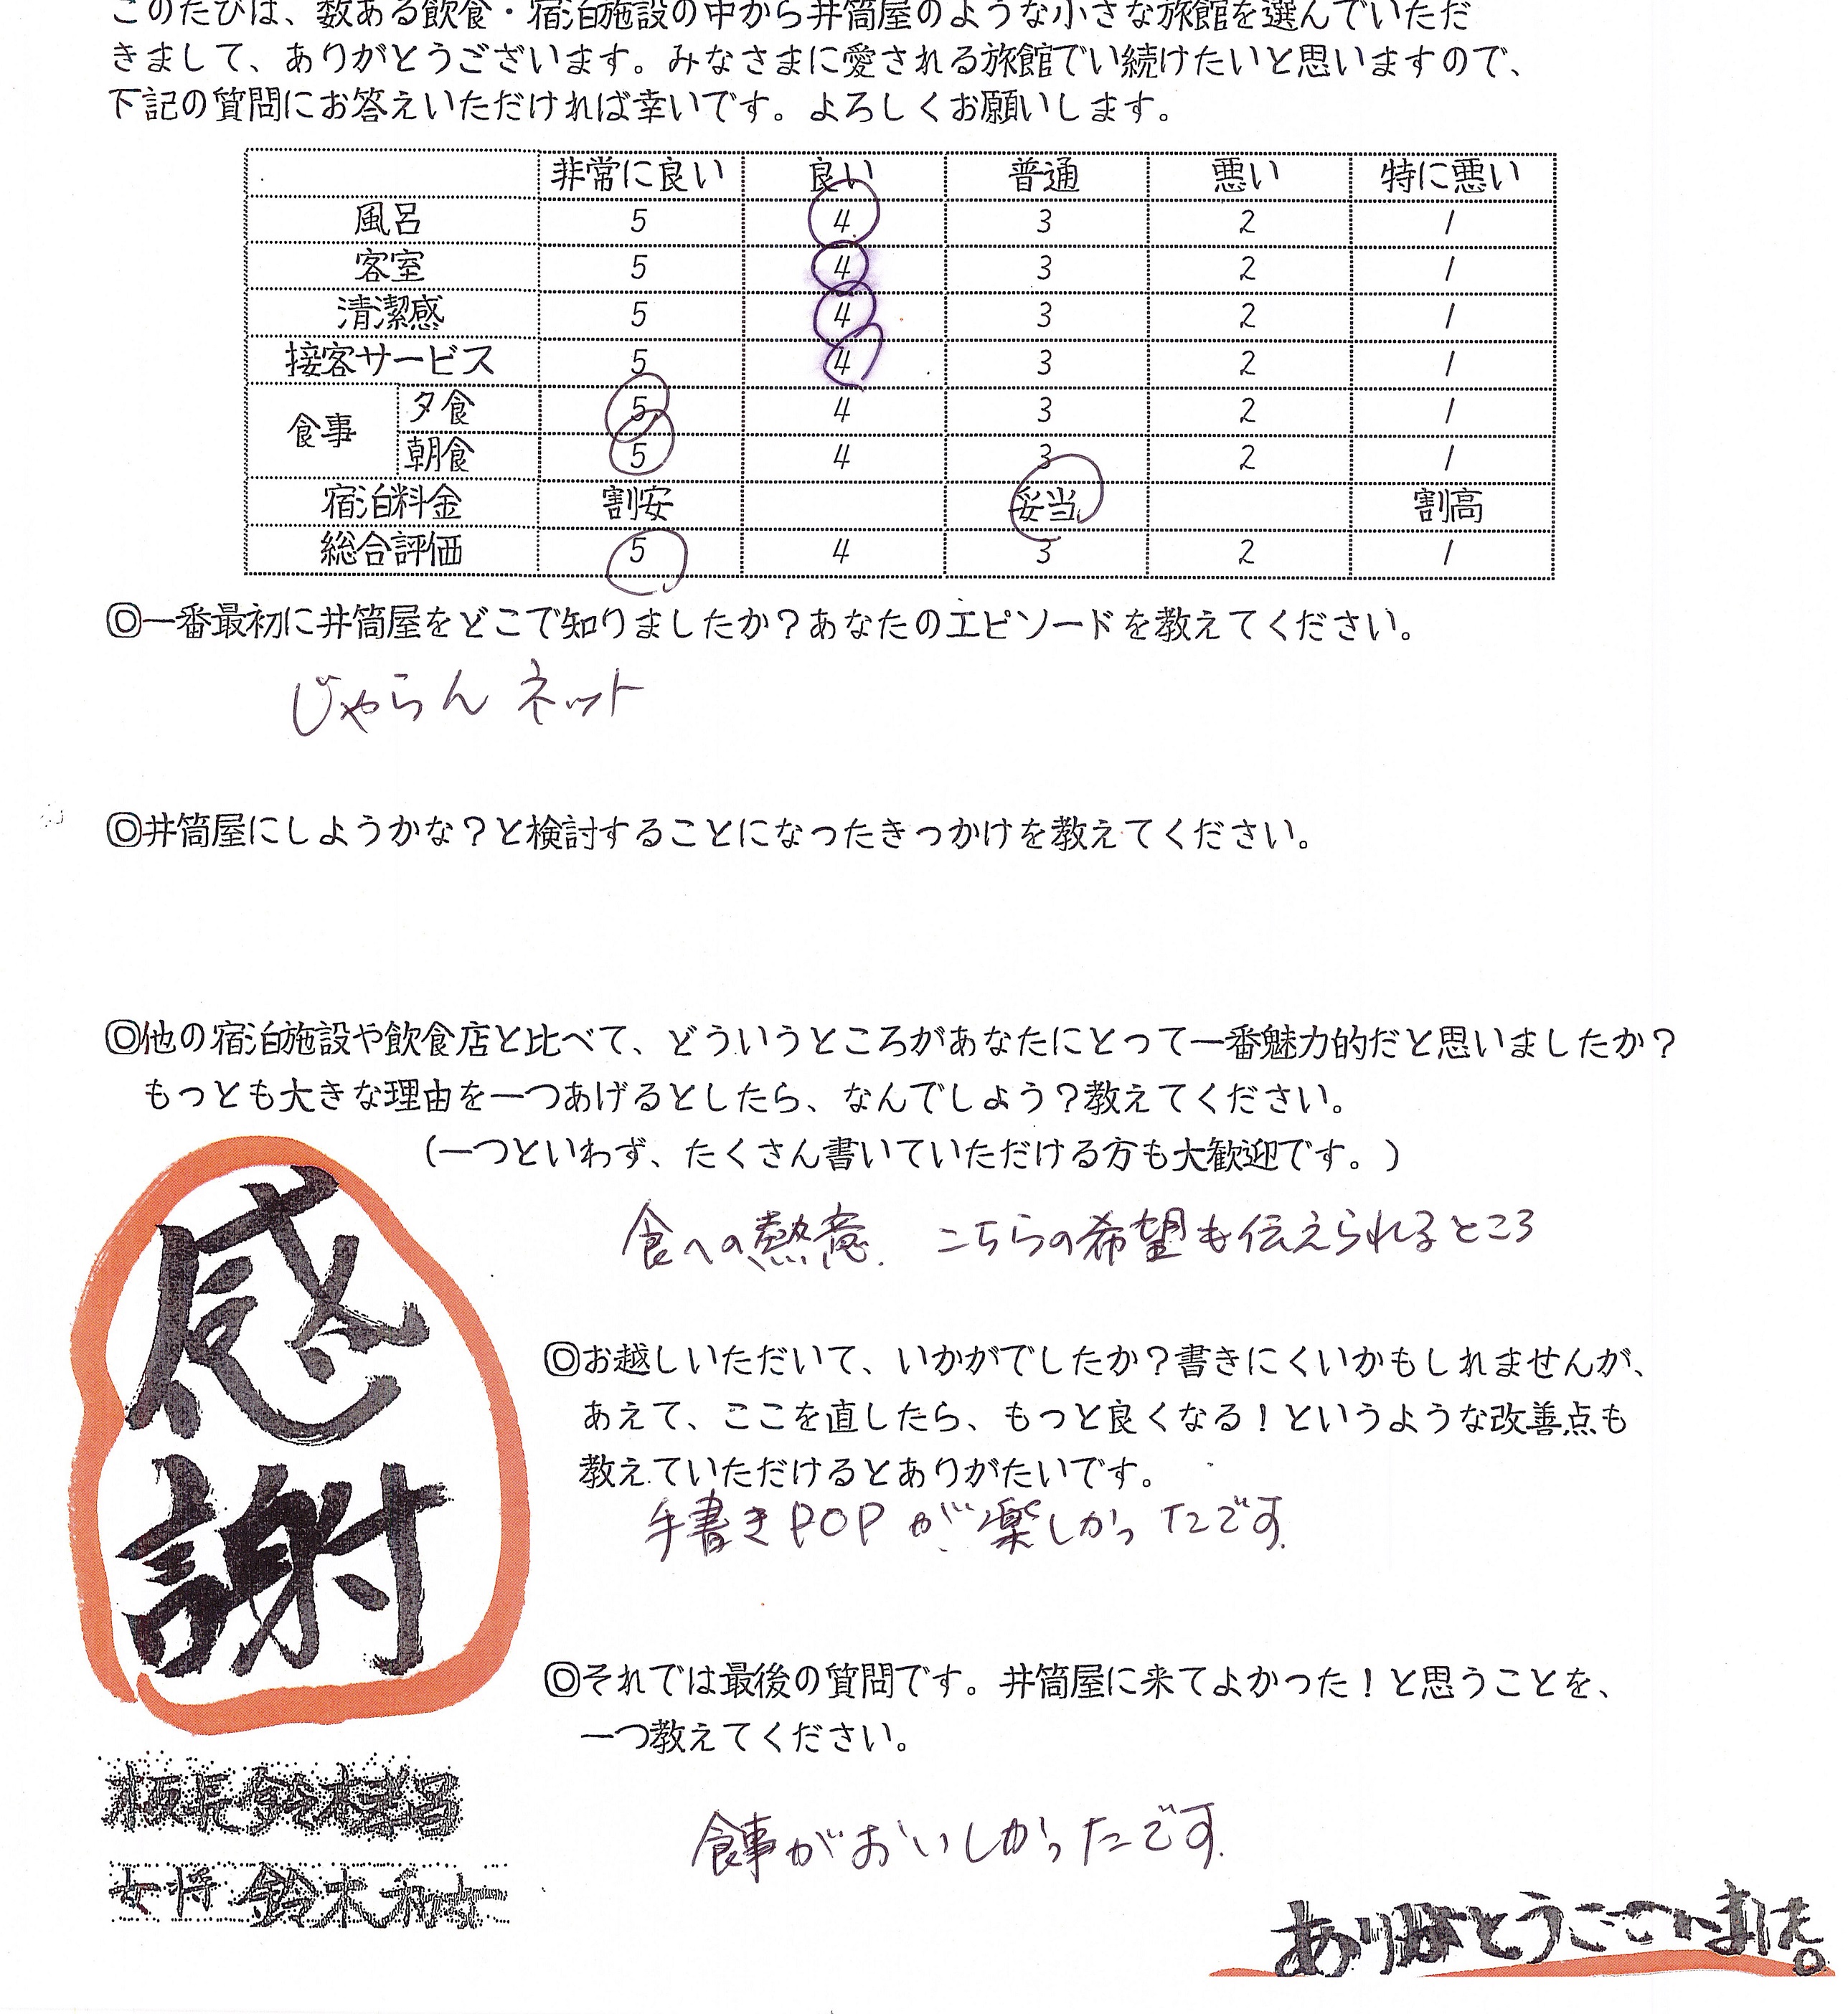 このたびは、数ある飲食・宿泊施設の中から井筒屋のような小さな旅館を選んでいただ
きまして、ありがとうございます。みなさまに愛される旅館でい続けたいと思いますので、
下記の質問にお答えいただければ幸いです。よろしくお願いします。
非常に良い 良い 普通 悪い 特に悪い
風呂 5 4 3 2 1
客室 5 4 3 2 1
清潔感 5 4 3 2 1
接客サービス 5 4 3 2 1
食事 夕食 5 4 3 2 1
朝食 5 4 3 2 1
宿泊料金 割安 妥当 割高
総合評価 5 4 3 2 1
◎一番最初に井筒屋をどこで知りましたか？あなたのエピソードを教えてください。
じゃらん ネット
◎井筒屋にしようかな？と検討することになったきっかけを教えてください。
◎他の宿泊施設や飲食店と比べて、どういうところがあなたにとって一番魅力的だと思いましたか？
もっとも大きな理由を一つあげるとしたら、なんでしょう？教えてください。
（一つといわず、たくさん書いていただける方も大歓迎です。）
食への熱意. こちらの希望も伝えられるところ
感謝
◎お越しいただいて、いかがでしたか？書きにくいかもしれませんが、
あえて、ここを直したら、もっと良くなる！というような改善点も
教えていただけるとありがたいです。
手書きPOPが楽しかったです.
◎それでは最後の質問です。井筒屋に来てよかった！と思うことを、
一つ教えてください。
食事がおいしかったです.
板長 鈴木
女将 鈴木
ありがとうございました。